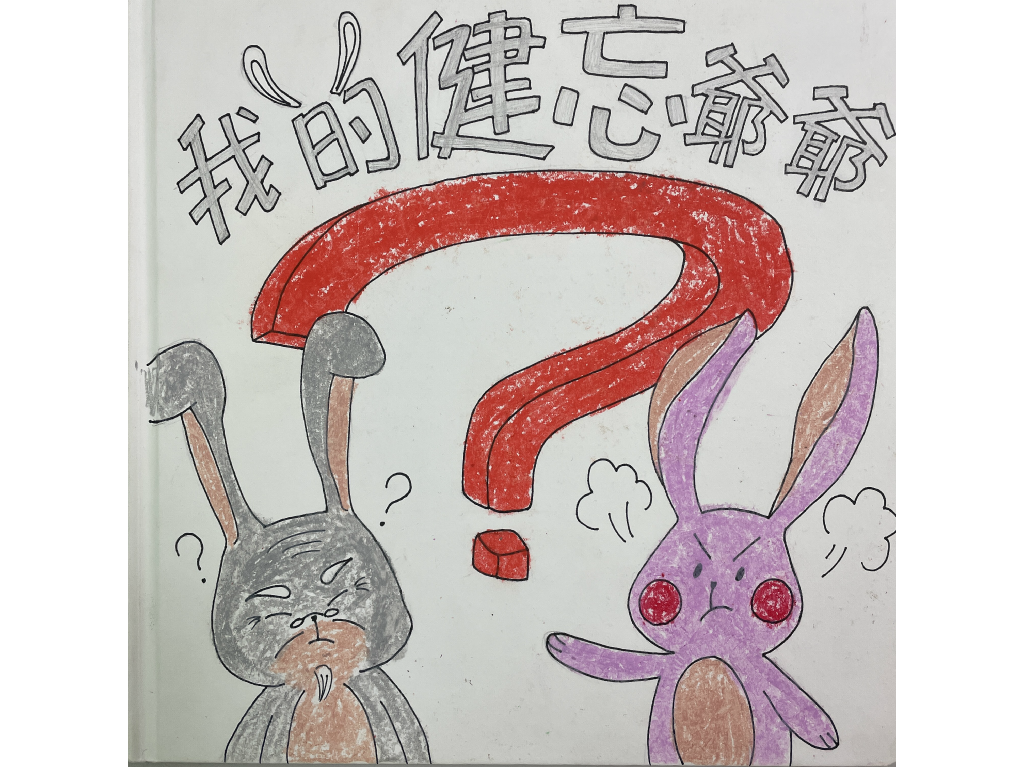 我的健忘爺爺
?
?
?